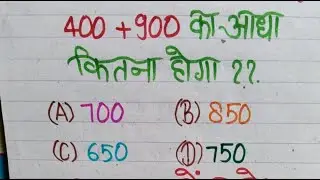 400 + 900 का आधा
कितना होगा ??.
(A) 700 (B) 850
(C) 650 (D) 750